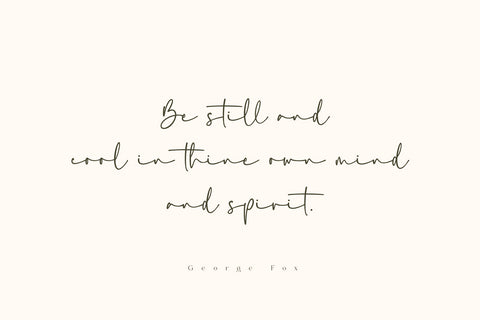 Be still and
cool in thine own mind
and spirit.
George Fox